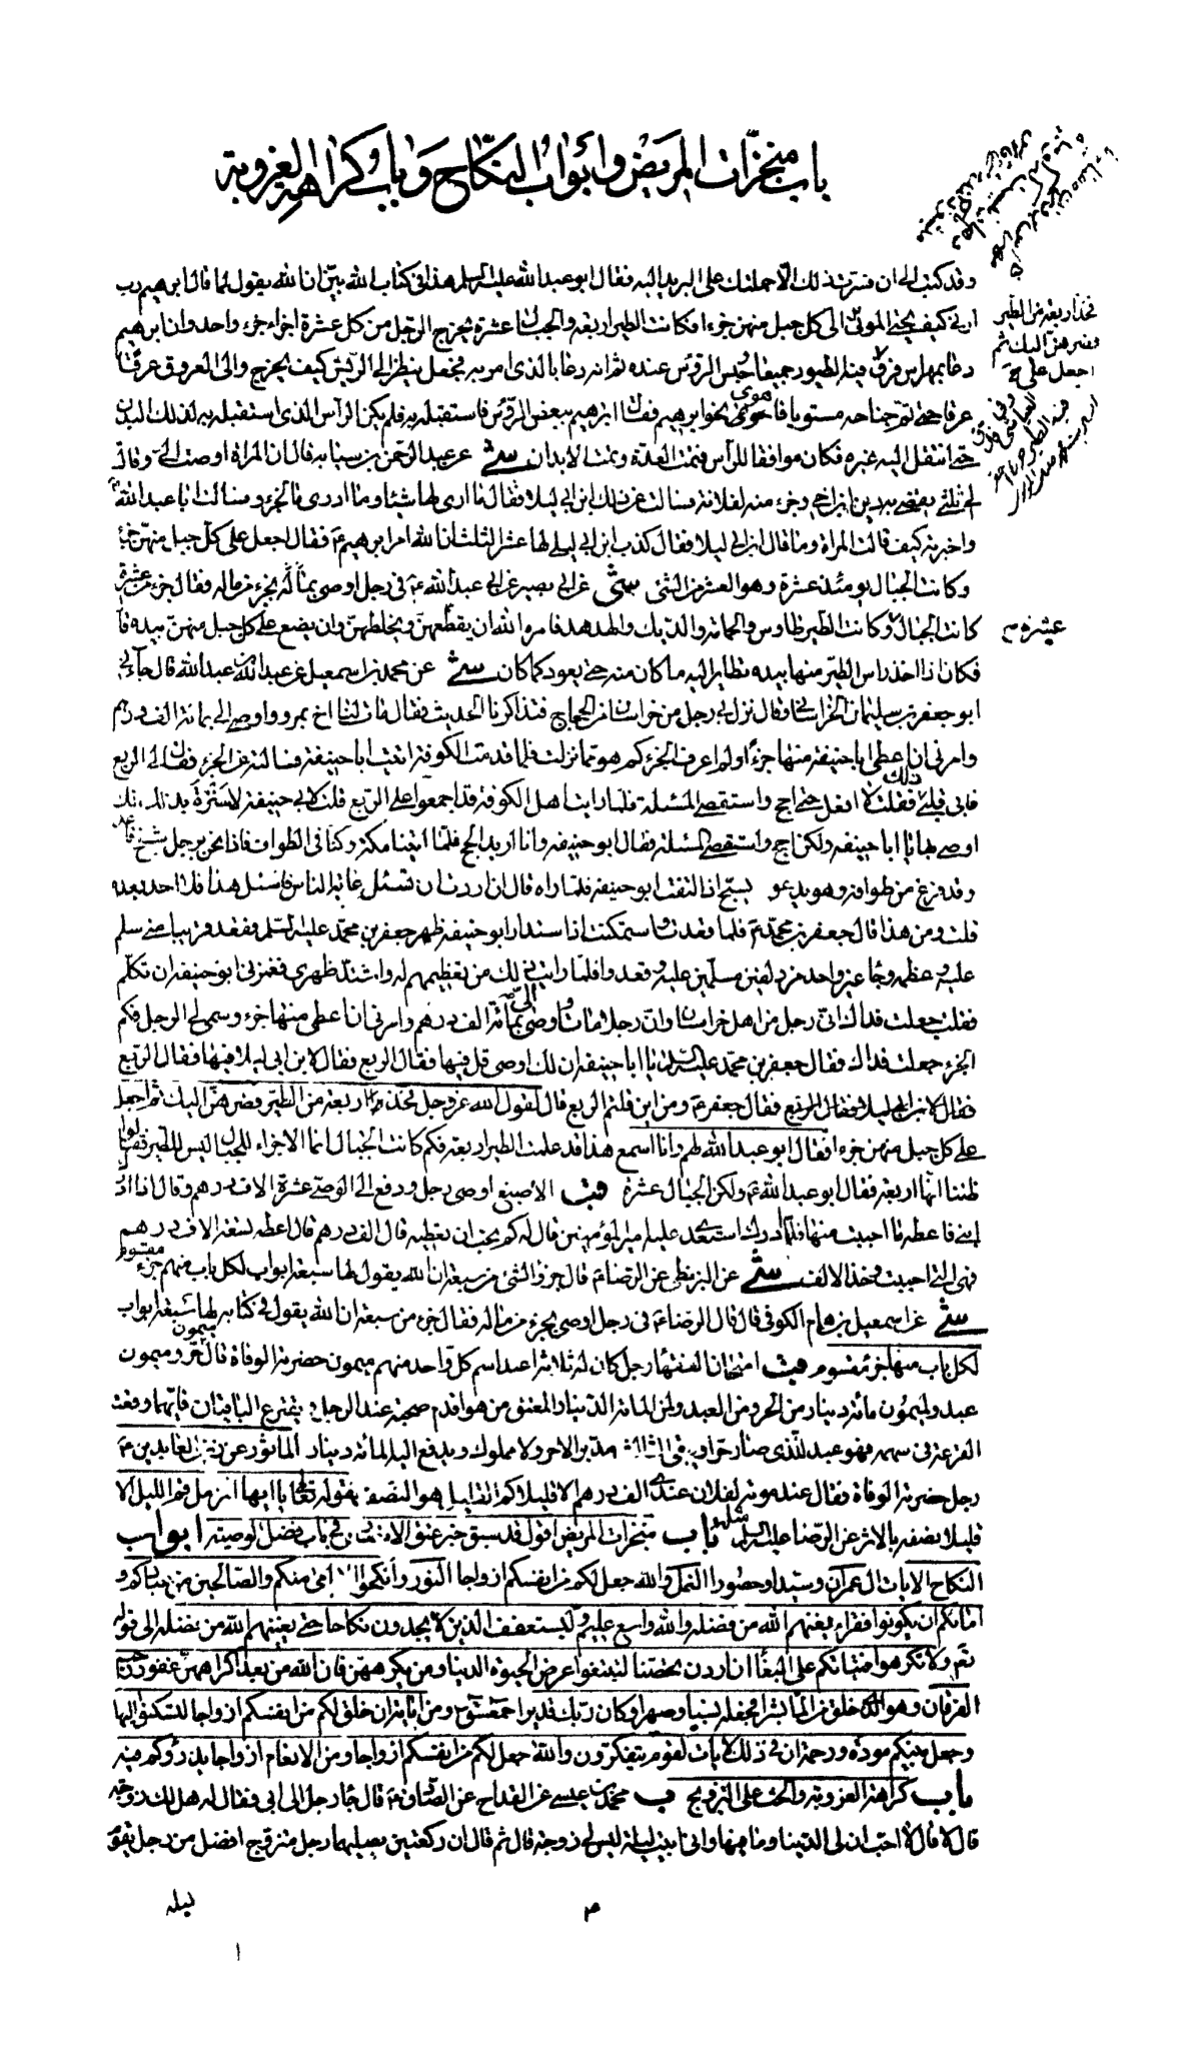 باب منجزات المريض وابواب النكاح وباب كراهة العزوبة
وقد كتب الي ان فسرت ذلك الا حملتك على البريد اليه فقال ابو عبد الله عليه السلم هذا في كتاب الله بين ان الله يقول لما قال ابرهيم رب
ارني كيف تحيي الموتى الى كل جبل منهن جزءا فكانت الطير اربعة والجبال عشرة يخرج الرجل من كل عشرة اجزاء جزء واحد وان ابرهيم
دعا بمهراس فدق فيه الطيور جميعا وحبس الرؤس عنده ثم انه دعا بالذي امر به فجعل ينظر الى الريش كيف يخرج والى العروق عرقا
عرقا حتى تم جناحه مستويا فاهوى نحو ابرهيم فقال ابرهيم ببعض الرؤس فاستقبله به فلم يكن الراس الذي استقبله به لذلك البدن
حتى انتقل اليه غيره فكان موافقا للراس فتمت العدة وتمت الابدان شى عن عبد الرحمن بن سيابة قال ان امراة اوصت الي وقالت
لي ثلثي يقضى به دين ابن اخي وجزء منه لفلانة فسالت عن ذلك ابن ابي ليلا فقال ما ارى لها شيئا وما ادري ما الجزء وسالت ابا عبد الله
واخبرته كيف قالت المراة وما قال ابن ابي ليلا فقال كذب ابن ابي ليلى لها عشر الثلث ان الله امر ابرهيم ع فقال اجعل على كل جبل منهن جزءا
وكانت الجبال يومئذ عشرة وهو العشر من الشئ شى عن ابي بصير عن ابي عبد الله ع في رجل اوصى بجزء من ماله فقال جزء من عشرة
كانت الجبال وكانت الطير طاوس والحمامة والديك والهدهد فامره الله ان يقطعهن ويخلطهن وان يضع على كل جبل منهن بيده
فكان اذا اخذ راس الطير منها بيده تطاير اليه ما كان منه حتى يعود كما كان شى عن محمد بن اسمعيل عن عبد الله بن عبد الله قال جاءني
ابو جعفر بن سليمان الخراساني وقال نزل بي رجل من خراسان من الحجاج فتذاكرنا الحديث فقال مات لنا اخ بمرو واوصى الي بمائة الف درهم
وامرني ان اعطي ابا حنيفة منها جزءا ولم اعرف الجزء كم هو مما ترك فلما قدمت الكوفة اتيت ابا حنيفة فسالته عن الجزء فقال لي الربع
فابى قلبي ذلك فقلت لا افعل حتى احج واستقصي المسئلة فلما رايت اهل الكوفة قد اجمعوا على الربع قلت لابي حنيفة
اوصى بها يا ابا حنيفة ولكن احج واستقصي المسئلة فقال ابو حنيفة وانا اريد الحج فلما اتينا مكة وكنا في الطواف فاذا نحن برجل شيخ قاعد
وقد فرغ من طوافه وهو يدعو يسبح اذ التفت ابو حنيفة فلما راه قال ان اردت ان تسئل غاية الناس فاسئل هذا فلا احد بعده
قلت ومن هذا قال جعفر بن محمد ع فلما قعدت واستمكنت اذ استدار ابو حنيفة ظهر جعفر بن محمد عليه السلم فقعد قريبا مني سلم
عليه وعظمه وجاء غير واحد مزدلفين مسلمين عليه وقعدوا فلما رايت ذلك من تعظيمهم له واشتد ظهري فغمزني ابو حنيفة ان تكلم
فقلت جعلت فداك اني رجل من اهل خراسان وان رجلا مات واوصى الي بمائة الف درهم وامرني ان اعطي منها جزء وسمى لي الرجل فكم
الجزء جعلت فداك فقال جعفر بن محمد عليه السلم يا ابا حنيفة لك اوصى قل فيها فقال الربع فقال لابن ابي ليلا قل فيها فقال الربع
فقال جعفر ع ومن اين قلتم الربع قال لقول الله عز وجل فخذ اربعة من الطير فصرهن اليك ثم اجعل
على كل جبل منهن جزءا فقال ابو عبد الله لهم وانا اسمع هذا قد علمت الطير اربعة فكم كانت الجبال انما الاجزاء للجبال ليس للطير فقالوا
ظننا انها اربعة فقال ابو عبد الله ع ولكن الجبال عشرة قب الاصبغ اوصى رجل ودفع الى الوصي عشرة الاف درهم وقال اذا ادرك
ابني فاعطه ما احببت منها فلما ادرك استعدى عليه امير المؤمنين قال له كم تحب ان تعطيه قال الف درهم قال اعطه تسعة الاف درهم
فهي التي احببت وخذ الالف شى عن البزنطي عن الرضا ع قال جزء الشئ من سبعة ان الله يقول لها سبعة ابواب لكل باب منهم جزء مقسوم
شى عن اسمعيل بن همام الكوفي قال قال الرضا ع في رجل اوصى بجزء من ماله فقال جزء من سبعة ان الله يقول في كتابه لها سبعة ابواب
لكل باب منها جزء مقسوم قب امتحان الفقهاء رجل كان له ثلاثة اعبد اسم كل واحد منهم ميمون حضرته الوفاة قال ميمون حر وميمون
عبد ولميمون مائة دينار من الحر ومن العبد ولمن المائة الدينار المعتق من هو اقدم صحبة عند الرجل ويقترع الباقيان فايهما وقعت
القرعة في سهمه فهو عبد للذي صار حرا ويبقى الثالث مدبر لا حر ولا مملوك ويدفع اليه المائة دينار الماثور عن زين العابدين ع
رجل حضرته الوفاة فقال عند موته لفلان عندي الف درهم الا قليلا كم القليل هو النصف بقوله تعالى يا ايها المزمل قم الليل الا
قليلا نصفه بالاثر عن الرضا عليه السلم مثله باب منجزات المريض اقول قد سبق خبر عتق في باب فضل الوصية ابواب
النكاح الايات ال عمران وسيدا وحصورا النحل والله جعل لكم من انفسكم ازواجا النور وانكحوا الايامى منكم والصالحين من عبادكم و
امائكم ان يكونوا فقراء يغنهم الله من فضله والله واسع عليم وليستعفف الذين لا يجدون نكاحا حتى يغنيهم الله من فضله الى قوله
تع ولا تكرهوا فتياتكم على البغاء ان اردن تحصنا لتبتغوا عرض الحيوة الدنيا ومن يكرههن فان الله من بعد اكراههن غفور رحيم
الفرقان وهو الذي خلق من الماء بشرا فجعله نسبا وصهرا وكان ربك قديرا حمعسق ومن اياته ان خلق لكم من انفسكم ازواجا لتسكنوا اليها
وجعل بينكم مودة ورحمة ان في ذلك لايات لقوم يتفكرون والله جعل لكم من انفسكم ازواجا ومن الانعام ازواجا يذرؤكم فيه
باب كراهة العزوبة والحث على التزويج ب محمد بن عيسى عن القداح عن الصادق ع قال جاء رجل الى ابي فقال له هل لك زوجة
قال لا قال لا احب ان لي الدنيا وما فيها واني ابيت ليلة ليس لي زوجة قال ثم قال ان ركعتين يصليهما رجل متزوج افضل من رجل يقوم
ليله
فخذ اربعة من الطير
فصرهن اليك ثم
اجعل على كل
عشرة م